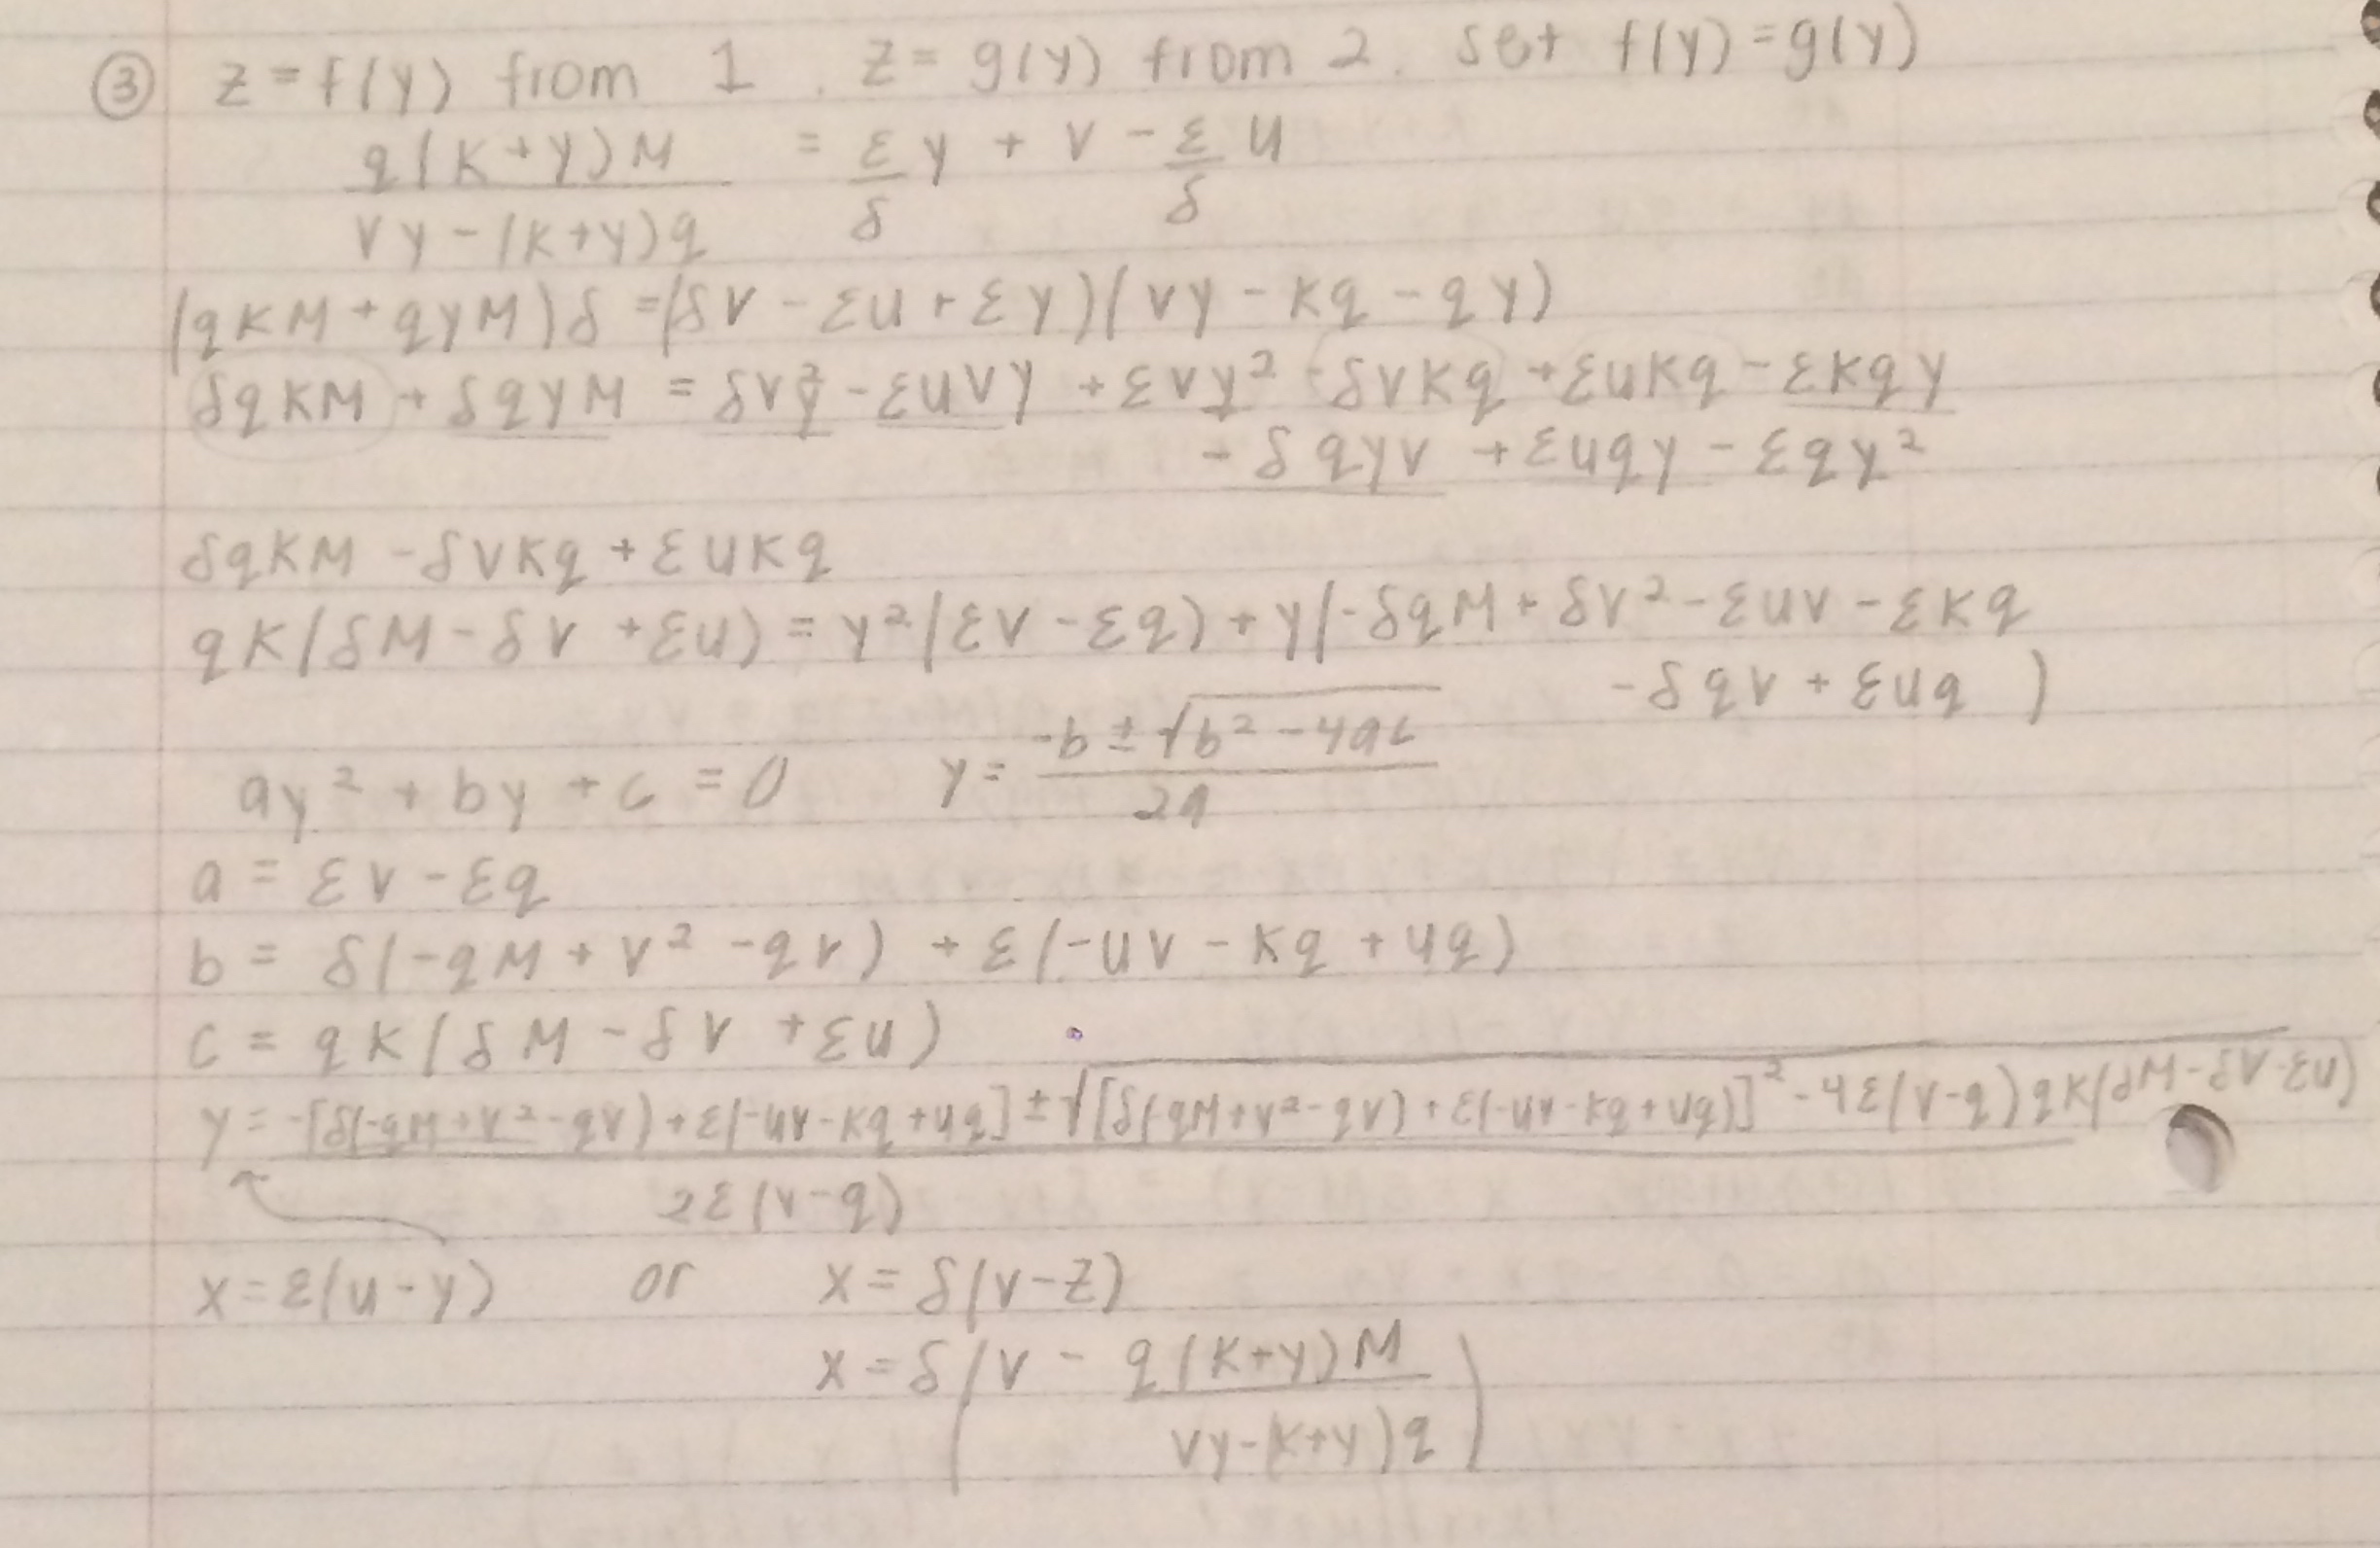 ③ z = f(y) from 1. z = g(y) from 2. set f(y) = g(y)
q(K+y)M / vy-(K+y)q = ε/δ y + v - ε/δ u
(qKM + qyM)δ = (δv - εu + εy)(vy - Kq - qy)
δqKM + δqyM = δv²y - εuvy + εvy² - δvKq + εuKq - εKqy
- δqyv + εuqy - εqy²
δqKM - δvKq + εuKq
qK(δM - δv + εu) = y²(εv - εq) + y(-δqM + δv² - εuv - εKq
- δqv + εuq )
ay² + by + c = 0 y = -b ± √b² - 4ac / 2a
a = εv - εq
b = δ(-qM + v² - qv) + ε(-uv - Kq + uq)
c = qK(δM - δv + εu)
y = -[δ(-qM+v²-qv)+ε(-uv-Kq+uq] ± √[δ(qM+v²-qv)+ε(-uv-Kq+uq)]² - 4ε(v-q)qK(δM-δv-εu) / 2ε(v-q)
x = ε(u-y) or x = δ(v-z)
x = δ(v - q(K+y)M / vy-(K+y)q)